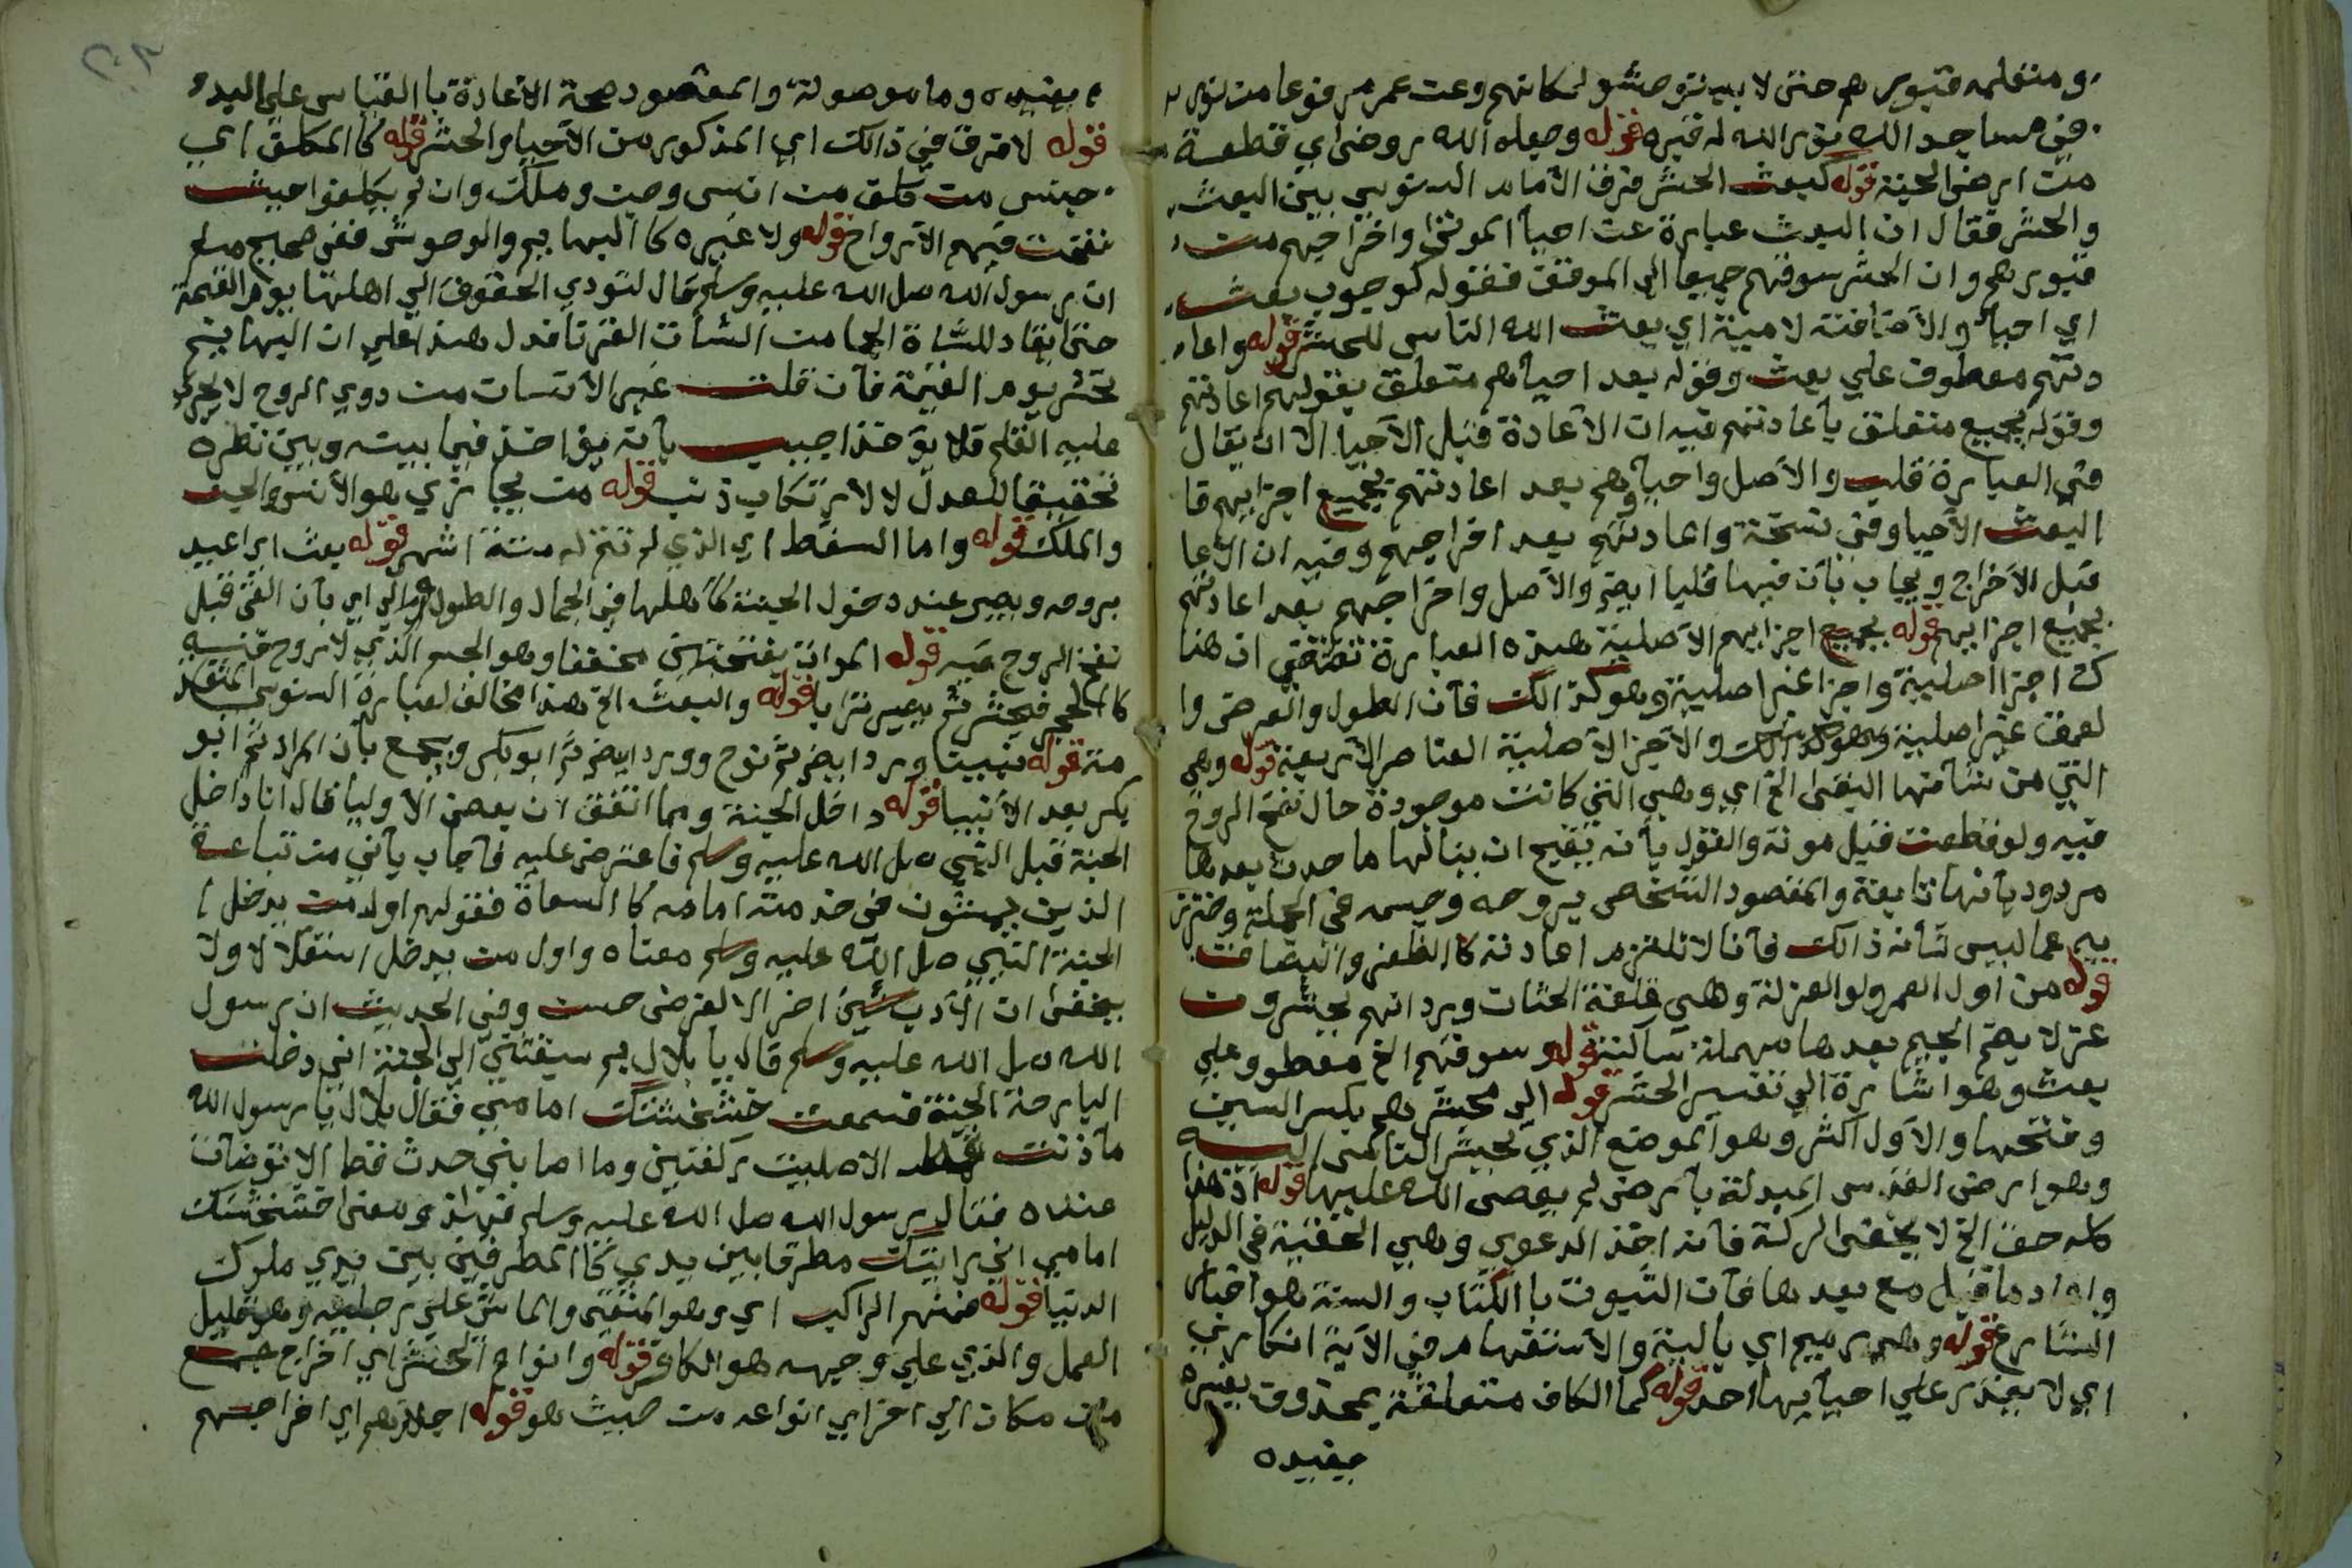 ومتعلمه قبورهم حتى لا يستوحشو لمكانهم وعن عمر مرفوعا من نور
في مساجد الله نور الله له قبره قوله وجعله الله روضة اي قطعة
من ارض الجنة قوله كبعث الحشر فرق الأمام السنوسي بين البعث
والحشر فقال ان البعث عبارة عن احيا الموتى واخراجهم من
قبورهم وان الحشر سوقهم جميعا الى الموقف فقوله كوجوب بعث
اي احيا والأضافة لامية اي بعث الله الناس للحشر قوله واعا
دتهم معطوف علي بعث وقوله بعد احيائهم متعلق بقولهم اعادتهم
وقوله بجميع متعلق بأعادتهم فيه ان الأعادة قبل الأحيا الا ان يقال
في العبارة قلب والأصل واحياؤهم بعد اعادتهم بجميع اجزايهم قا
البعث الأحيا وفي نسخة واعادتهم بعد اخراجهم وفيه ان الأعا
قبل الأخراج ويجاب بأن فيها قلبا ايضا والأصل واخراجهم بعد اعادتهم
بجميع اجزايهم قوله بجميع اجزايهم الأصلية هذه العبارة تقتضي ان هنا
ك اجزا اصلية واجزا غير اصلية وهو كذالك فأن الطول والعرض وا
لعمق غير اصلية والأجزا الأصلية العناصر الأربعة قوله وهي
التي من شأنها البقى الخ اي وهي التي كانت موجودة حال نفخ الروح
فيه ولو قطعت قبل موته والقول بأنه يقبح ان ينالها ما حدث بعدها
مردود بأنها تابعة والمقصود الشخص بروحه وجسمه في الجملة وحترز
بهم عما ليس شأنه ذالك فأنا لا نلتزم اعادته كا الظفر والبصاق
قوله من اول العمر ولو الغرلة وهي قلفة الختان ورد انهم يحشرون
غرلا بضم الجيم بعدها مهملة ساكنة قوله وسوقهم الخ معطوو علي
بعث وهو اشارة الي تفسير الحشر قوله الى محشرهم بكسر السين
وفتحها والأول اكثر وهو الموضع الذي يحشر الناس اليه
وهو ارض القدس المبدلة بأرض لم يعصى الله عليها قوله اذ هذا
كله حق الخ لا يخفى الركة فأنه اخذ الدعوي وهي الحقية في الدليل
وامراد ما قبل مع بعدها فأن الثبوت با الكتاب والسنة هو اخبار
الشارع قوله وهي رميم اي بالية والأستفهام في الآية انكاري
اي لا يقدر علي احيايها احد قوله كما الكاف متعلقة بمحذوف يفسره
يفيده
يفيده وما موصولة والمقصود صحة الأعادة با القياس علي البدء
قوله لا فرق في ذالك اي المذكور من الأحيا والحشر قوله كا المكلف اي
جنس من كلف من انس وجن وملك وان لم يكلفوا حيث
نفخت فيهم الأرواح قوله ولا غيره كا البهايم والوحوش ففي صحيح مسلم
ان رسول الله صل الله عليه وسلم قال لتودي الحقوق الي اهلها يوم القيمة
حتى يقاد للشاة الجما من الشأة القرنا فدل هذا علي ان البهايم
تحشر يوم القيمة فأن قلت غير الأنسان من دوي الروح لا يجري
عليه القلم فلا يوخذ اجيب بأنه يؤاخذ فيما بينه وبين نظره
تحقيقا للعدل لا لأرتكاب ذنب قوله من يجازي هو الأنس والجن
والملك قوله واما السقط اي الذي لم تتم له ستة اشهر قوله بعث اي اعيد
بروحه ويصير عند دخول الجنة كأهلها في الجمال والطول قوله والا اي بأن القى قبل
نفخ الروح فيه قوله الموات بفتحتين مخففا وهو الجسم الذي لا روح فيه
كا الحجر فيحشر ثم يصير ترابا قوله والبعث الخ هذا مخالف لعبارة السنوسي المتقد
مة قوله نبينا ورد ايضا ثم نوح وورد ايضا ثم ابو بكر ويجمع بأن المراد ثم ابو
بكر بعد الأنبيا قوله داخل الجنة ومما اتفق ان بعض الأوليا قال انا داخل
الجنة قبل النبي صل الله عليه وسلم فاعترض عليه فأجاب بأني من تباعه
الذين يمشون في خدمته امامه كا السعاة فقولهم اول من يدخل
الجنة النبي صل الله عليه وسلم معناه واول من يدخل استقلالا ولا
يخفى ان الأدب شيئ اخر الا لغرض حسن وفي الحديث ان رسول
الله صل الله عليه وسلم قال يا بلال بم سبقتني الي الجنة اني دخلت
البارحة الجنة فسمعت خشخشتك امامي فقال بلال يا رسول الله
مأذنت قط الا صليت ركعتين وما اصابني حدث قط الا توضأت
عنده فقال رسول الله صل الله عليه وسلم فبهذا ومعنى خشخشتك
امامي اني رايتك مطرقا بين يدي كا المطرقين بين يدي ملوك
الدنيا قوله فمنهم الراكب اي وهو المتقى والماشى على رجليه وهو قليل
العمل والذي علي وجهه هو الكافر قوله وانواع الحشر اي اخراج جمع
من مكان الي اخر اي انواعه من حيث هو قوله اجلاؤهم اي اخراجهم